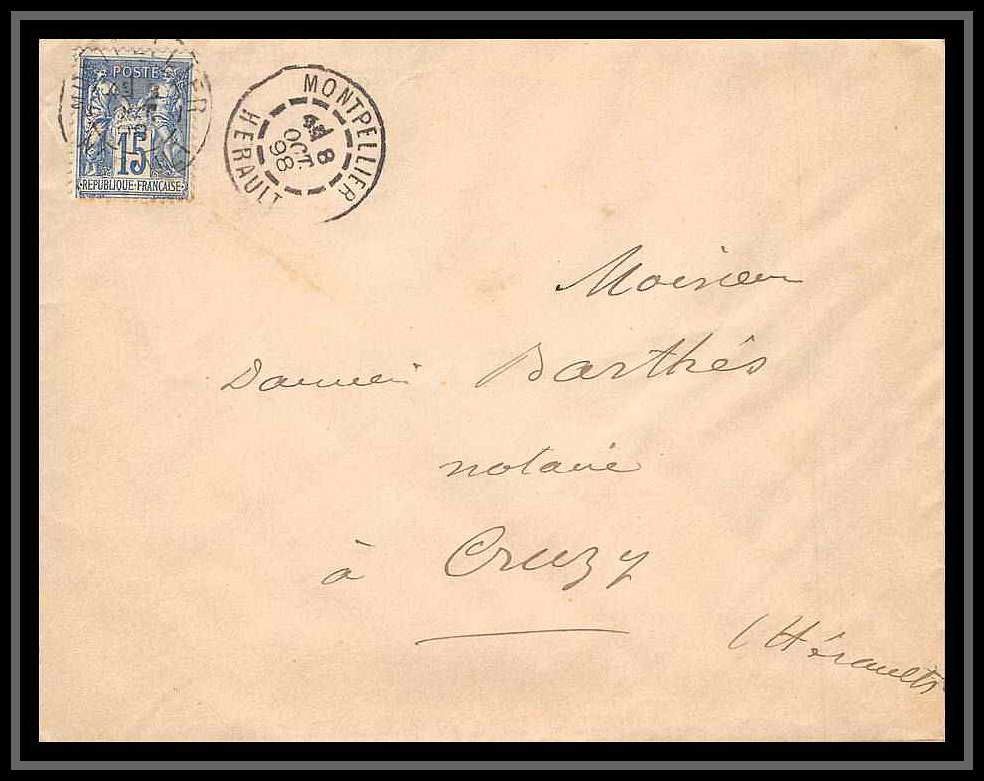 POSTE
15
REPUBLIQUE FRANÇAISE
MONTPELLIER
8
OCT.
98
HERAULT
Monsieur
Barthés
notaire
à Cruzy
(Hérault)